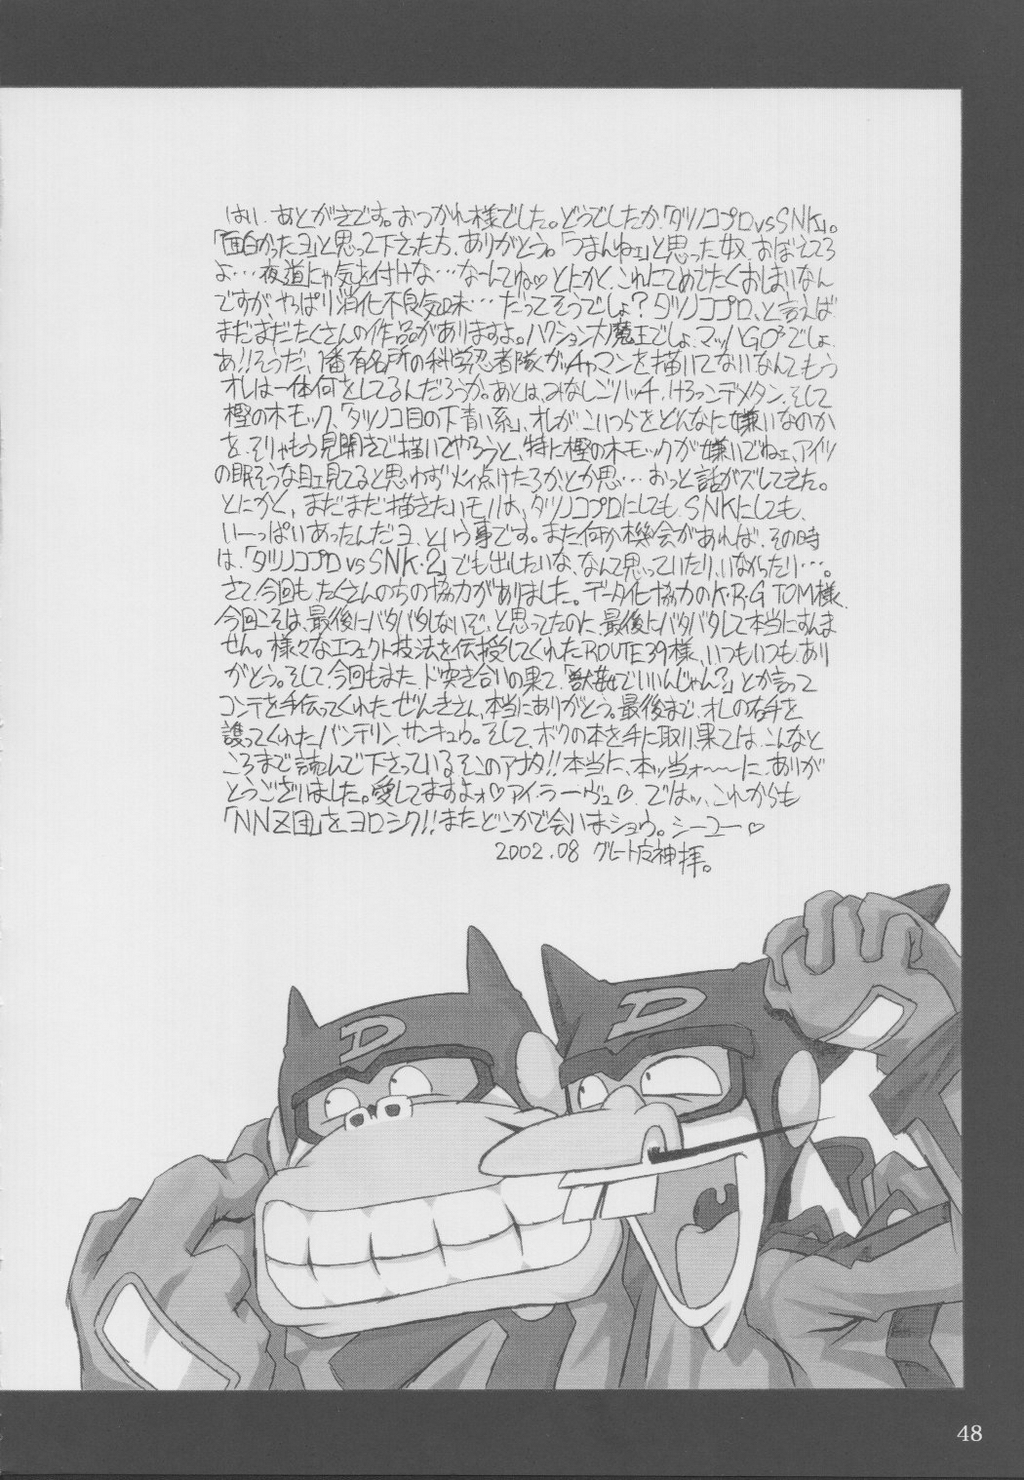 はい、あとがきです。おつかれ様でした。どうでしたか「タツノコプロvsSNK」。
「面白かったヨ」と思って下さった方、ありがとう。「つまんねェ」と思った奴、おぼえてろ
よ…夜道にゃ気を付けな…なーんてね♡とにかく、これにてめでたくおしまいなん
ですが、やっぱり消化不良気味…だってそうでしょ?タツノコプロ、と言えば
まだまだたくさんの作品がありますよ。ハクション大魔王でしょ、マッハGO³でしょ、
あ!!そうだ、1番有名所の科学忍者隊ガッチャマンを描いてないなんてもう
オレは一体何をしてるんだろうか。あとは、みなしごハッチ、けろっこデメタン、そして
樫の木モック、「タツノコ目の下青い系」、オレが、こいつらをどんなに嫌いなのか
を、そりゃもう見開きで描いてやろうと、特に樫の木モックが嫌いでねェ、アイツ
の眠そうな目ェ見てると思わず火ィ点けたろか、とか思…おっと話がズレてきた。
とにかく、まだまだ描きたいモノは、タツノコプロにしても、SNKにしても、
いーっぱいあったんだヨ、という事です。また何か機会があれば、その時
は、「タツノコプロvsSNK・2」でも出したいな、なんて思っていたり、いなかったり…。
さて、今回も、たくさんのちの協力がありました。データ化協力のK・R・G TOM様、
今回こそは、最後にバタバタしないぞ、と思ってたのに、最後にバタバタして本当にすんま
せん。様々なエフェクト技法を伝授してくれたROUTE39様、いつもいつも、あり
がとう。そして、今回もまた、ド突き合いの果て、「獣姦でいいんじゃん?」とか言って
コンテを手伝ってくれた、ぜんきさん、本当にありがとう。最後まで、オレの右手を
護ってくれた、バンテリン、サンキュウ。そして、ボクの本を手に取り、果ては、こんなと
ころまで読んで下さっているそこのアナタ!!本当に、本ッ当ォ〜〜〜に、ありが
とうございました。愛してますよォ♡アイ、ラーヴュ♡、ではッ、これからも
「NNZ団」を、ヨロシク!!またどこかで会いましョウ。シーユー♡
2002.08 グレート 神 拝。
D
D
48